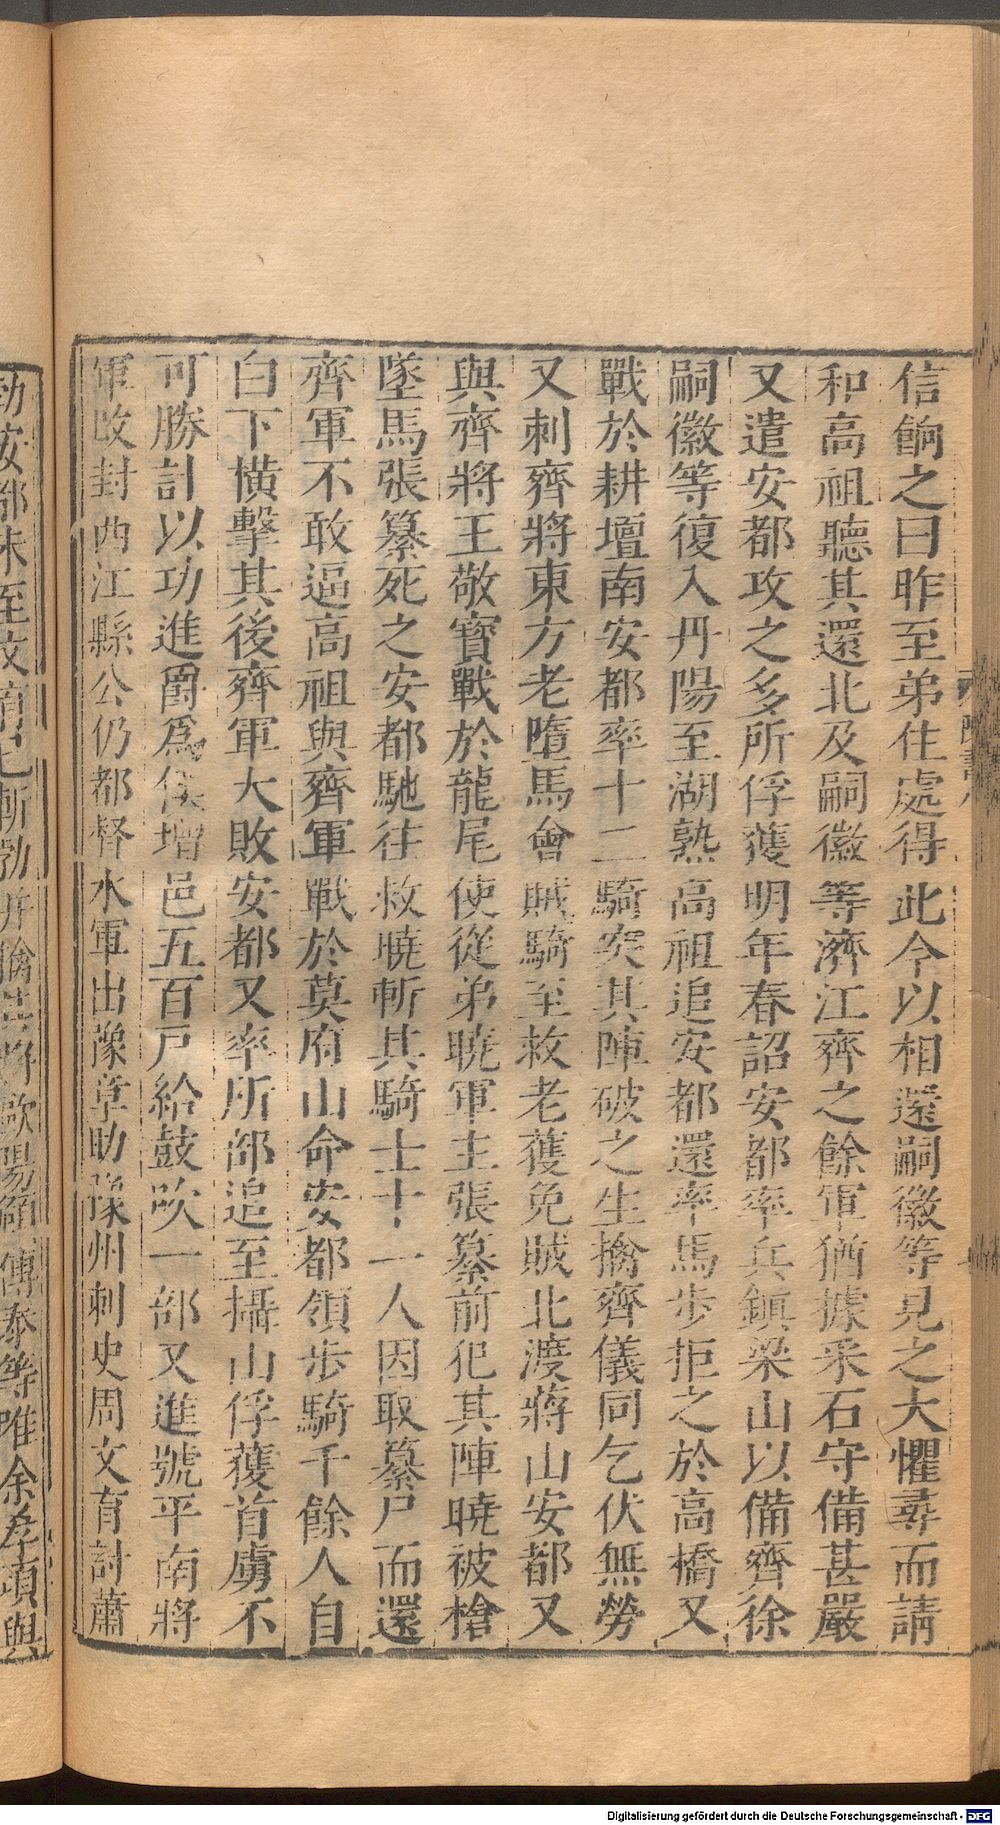 信餉之曰昨至弟住處得此今以相還嗣徽等見之大懼尋而請
和高祖聽其還北及嗣徽等濟江齊之餘軍猶據采石守備甚嚴
又遣安都攻之多所俘獲明年春詔安都率兵鎮梁山以備齊徐
嗣徽等復入丹陽至湖熟高祖追安都還率馬步拒之於高橋又
戰於耕壇南安都率十二騎突其陣破之生擒齊儀同乞伏無勞
又刺齊將東方老墮馬會賊騎至救老獲免賊北渡蔣山安都又
與齊將王敬寶戰於龍尾使從弟曉軍主張纂前犯其陣曉被槍
墜馬張纂死之安都馳往救曉斬其騎士十一人因取纂尸而還
齊軍不敢逼高祖與齊軍戰於莫府山命安都領步騎千餘人自
白下橫擊其後齊軍大敗安都又率所部追至攝山俘獲首虜不
可勝計以功進爵為侯增邑五百戶給鼓吹一部又進號平南將
軍改封西江縣公仍都督水軍出豫章助豫州刺史周文育討蕭
勃安都未至文育已斬勃并擒其將歐陽頠傅泰等唯余孝頃與
Digitalisierung gefördert durch die Deutsche Forschungsgemeinschaft - DFG